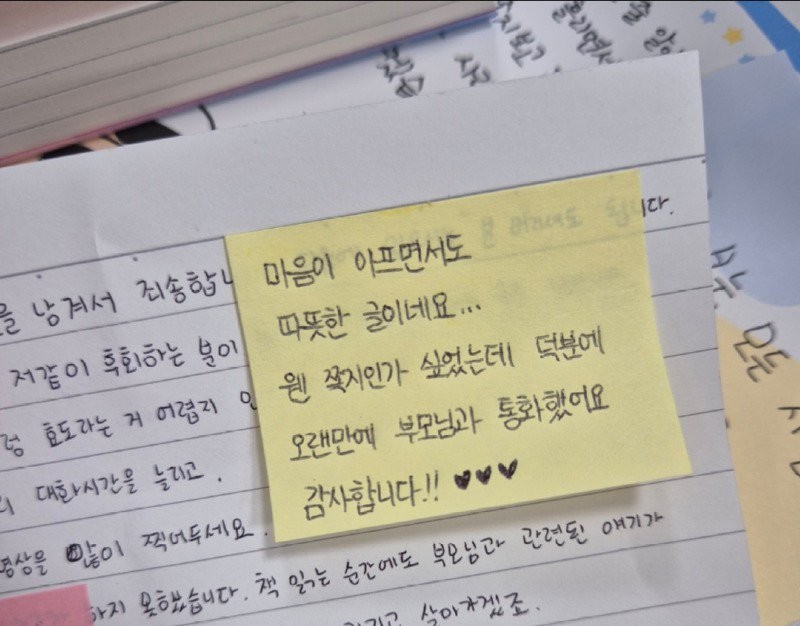 를 남겨서 죄송합니
니다.
저같이 후회하는 분이
효도라는 거 어렵지
대화시간을 늘리고.
영상을 많이 찍어두세요.
하지 못했습니다. 책 읽는 순간에도 부모님과 관련된 얘기가
살아가겠죠.
마음이 아프면서도
따뜻한 글이네요...
웬 쪽지인가 싶었는데 덕분에
오랜만에 부모님과 통화했어요
감사합니다!! ♥♥♥